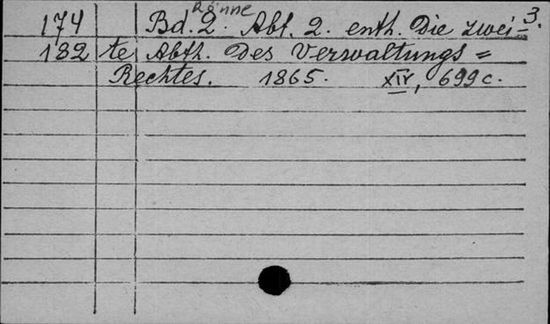 Rönne 3.
174 Bd. 2. Abt. 2. enth. Die zwei-
182 te Abth. Des Verwaltungs=
Rechtes. 1865. XIV, 699 c.